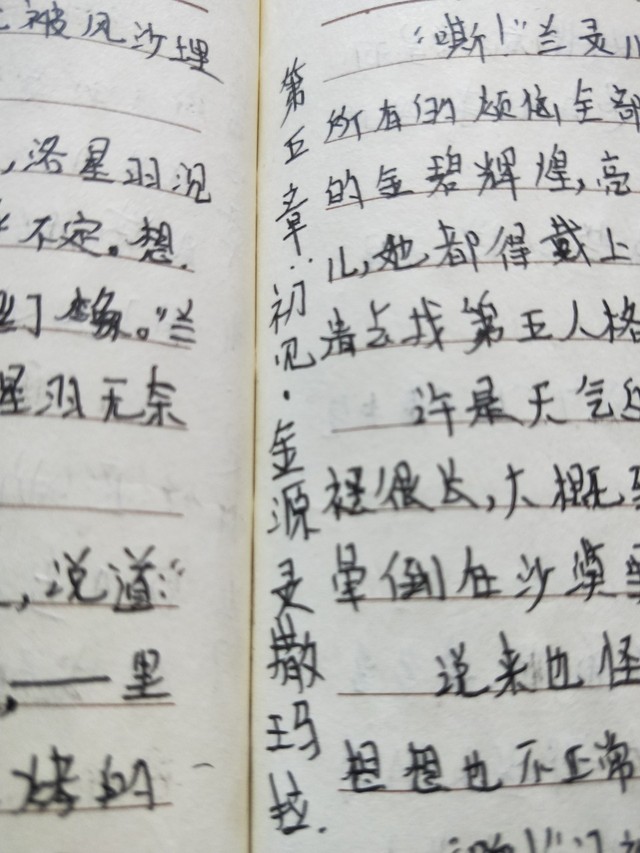 被风沙埋
,洛星羽况
不定。想
了嫁。”兰
星羽无奈
,说道:“
,——里
烤的
第五章:初见·金源灵撒玛拉.
“嘶!”兰灵儿
所有的烦恼全部
的金碧辉煌,亮
儿,她都得戴上
着去找第五人格
许是天气
裙很长,大概
晕倒在沙漠
说来也怪
想想也不正常